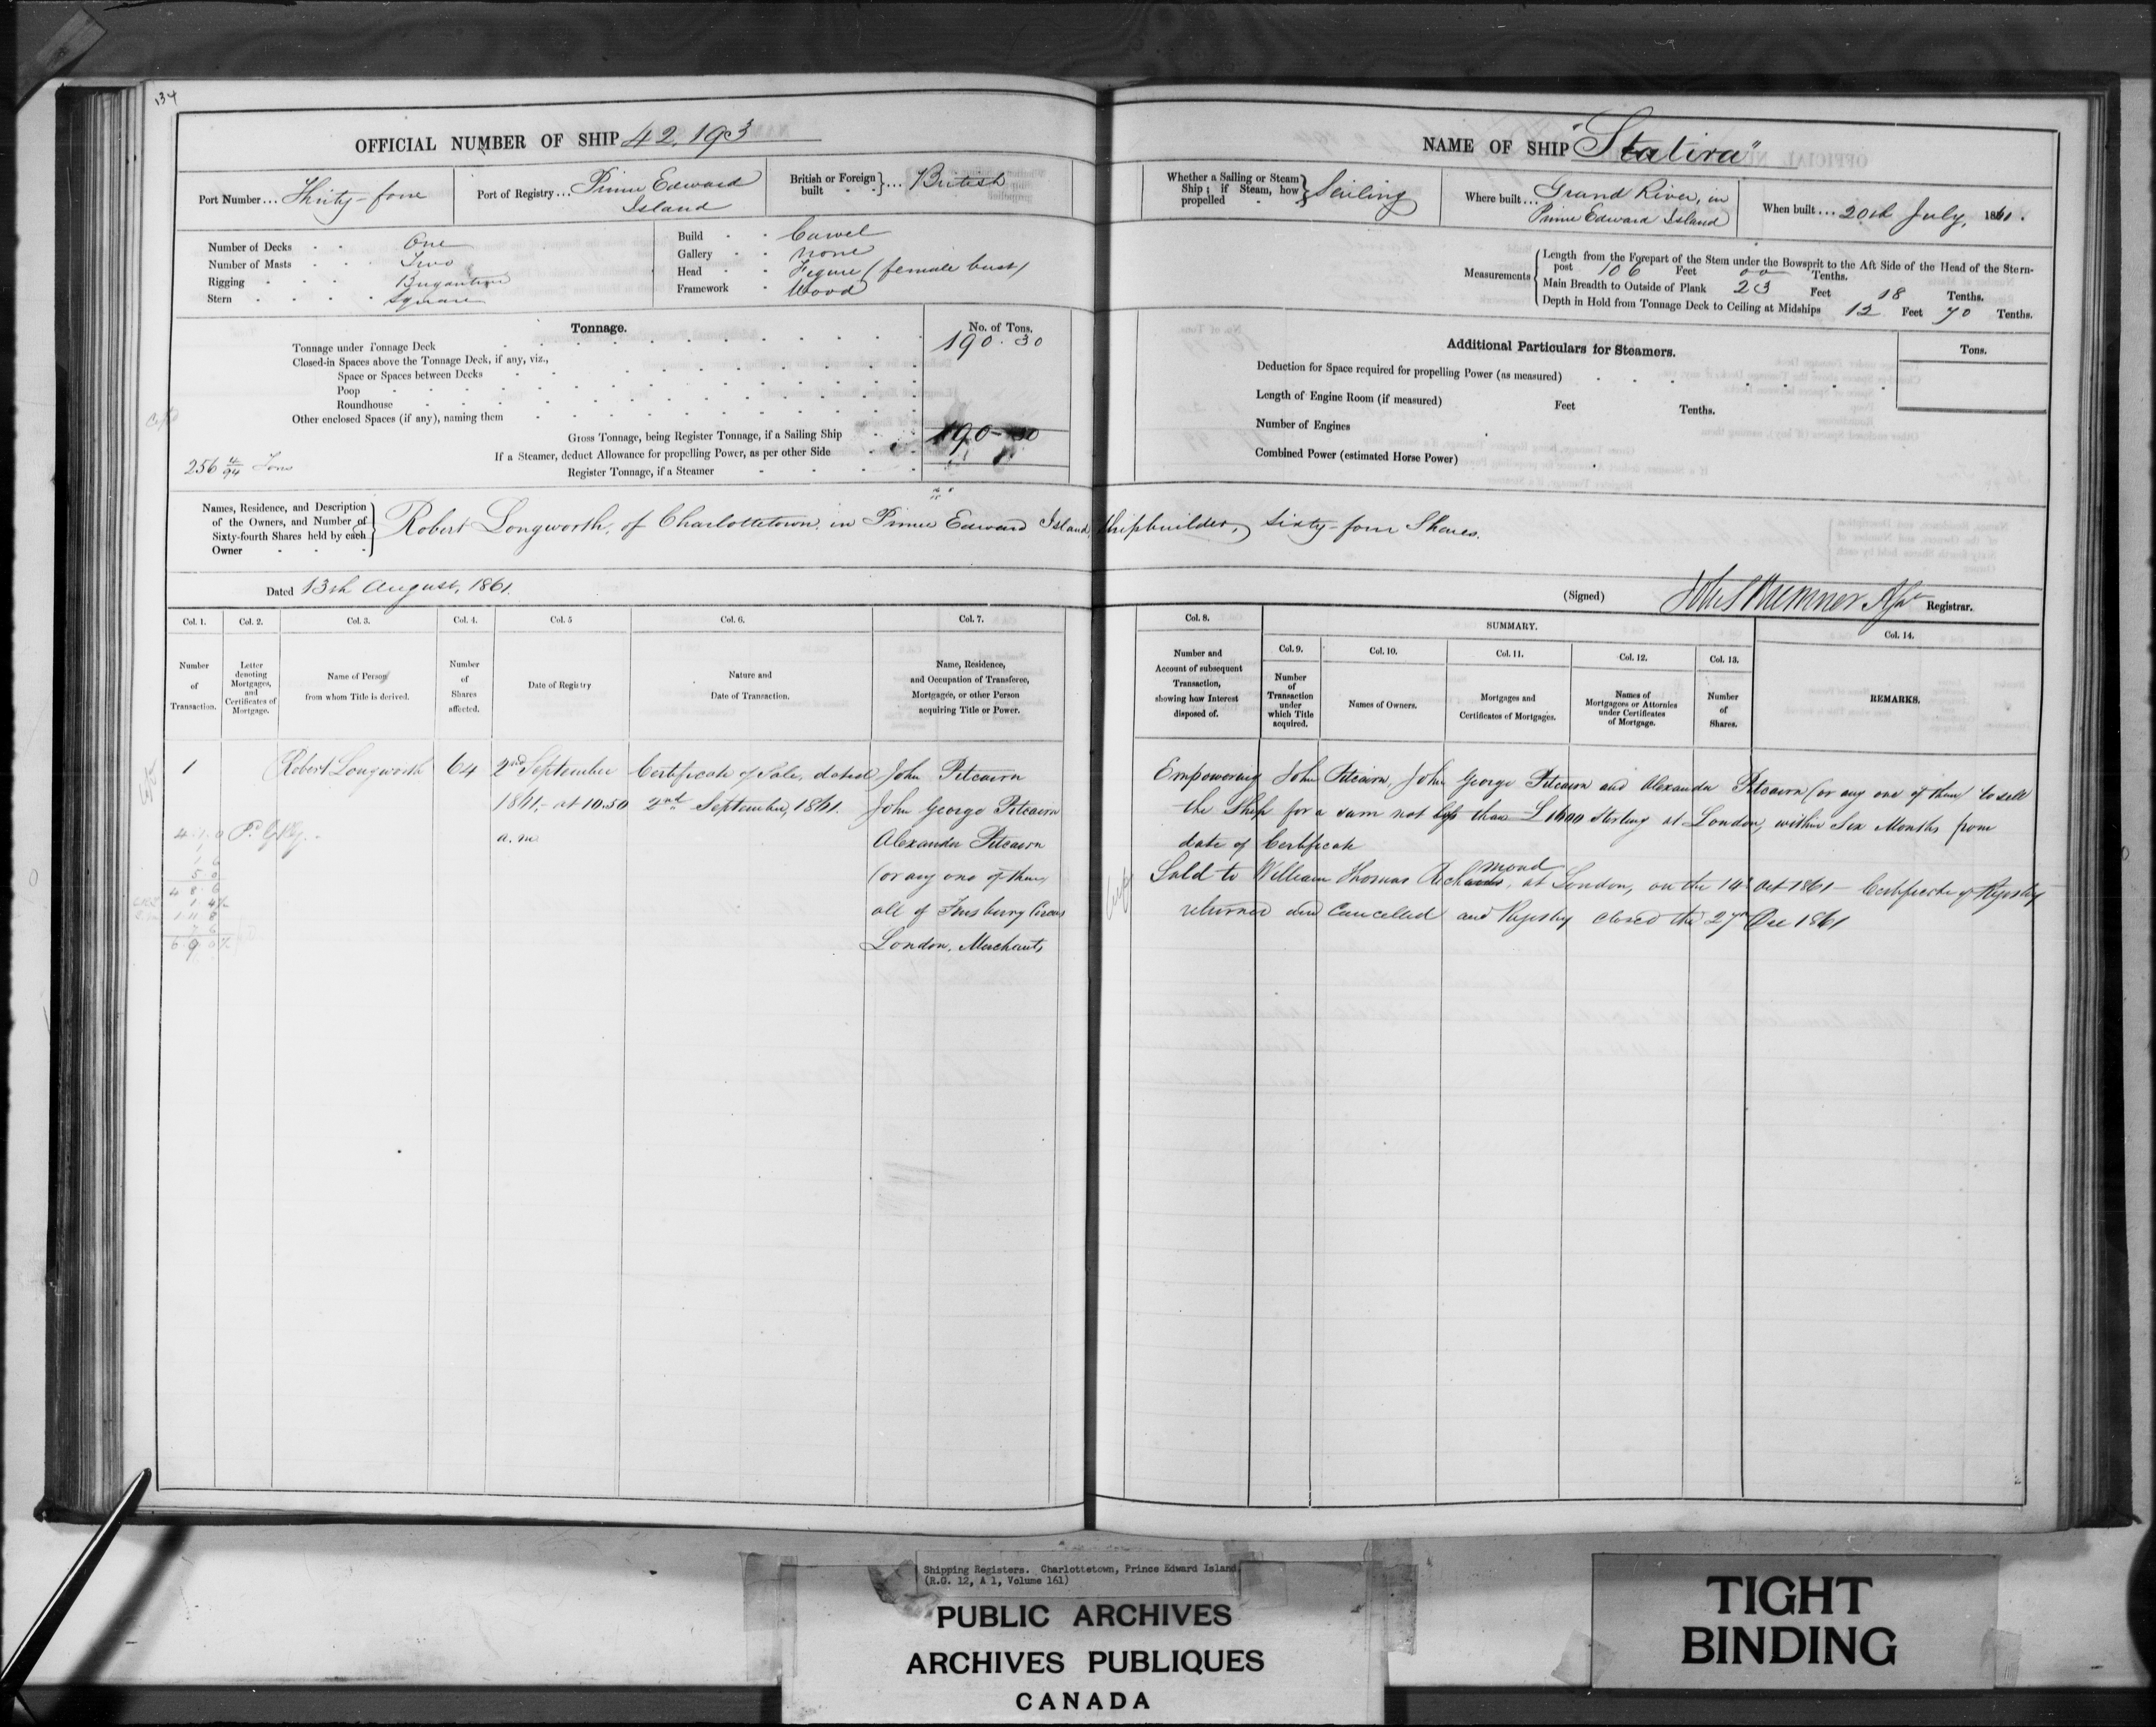 134
OFFICIAL NUMBER OF SHIP 42.193
Port Number... Thirty-four
Port of Registry... Prince Edward Island
British or Foreign built } ... British
Number of Decks One
Number of Masts Two
Rigging Brigantine
Stern Square
Build Carvel
Gallery None
Head Figure (female bust)
Framework Wood
Tonnage.
No. of Tons.
Tonnage under Tonnage Deck 190.30
Closed-in Spaces above the Tonnage Deck, if any, viz.,
Space or Spaces between Decks
Poop
Roundhouse
Other enclosed Spaces (if any), naming them
Gross Tonnage, being Register Tonnage, if a Sailing Ship 190-30
If a Steamer, deduct Allowance for propelling Power, as per other Side
256 4/94 Tons
Register Tonnage, if a Steamer
Names, Residence, and Description of the Owners, and Number of Sixty-fourth Shares held by each Owner } Robert Longworth, of Charlottetown, in Prince Edward Island, Shipbuilder, Sixty-four Shares.
Dated 13th August, 1861.
Col. 1. Col. 2. Col. 3. Col. 4. Col. 5 Col. 6. Col. 7.
Number of Transaction.
Letter denoting Mortgages, and Certificates of Mortgage.
Name of Person from whom Title is derived.
Number of Shares affected.
Date of Registry
Nature and Date of Transaction.
Name, Residence, and Occupation of Transferee, Mortgagee, or other Person acquiring Title or Power.
1 Robert Longworth 64 2nd September Certificate of Sale, dated John Pitcairn
1861, at 10.50 2nd September, 1861. John George Pitcairn
a.m. Alexander Pitcairn
(or any one of them)
all of Finsbury Circus
London, Merchants
NAME OF SHIP "Statira"
Whether a Sailing or Steam Ship; if Steam, how propelled } Sailing
Where built... Grand River, in Prince Edward Island
When built... 20th July, 1861.
Measurements { Length from the Forepart of the Stem under the Bowsprit to the Aft Side of the Head of the Stern-
post 106 Feet 00 Tenths.
Main Breadth to Outside of Plank 23 Feet 18 Tenths.
Depth in Hold from Tonnage Deck to Ceiling at Midships 12 Feet 70 Tenths.
Additional Particulars for Steamers.
Tons.
Deduction for Space required for propelling Power (as measured)
Length of Engine Room (if measured) Feet Tenths.
Number of Engines
Combined Power (estimated Horse Power)
(Signed) Registrar.
Col. 8. SUMMARY. Col. 14.
Col. 9. Col. 10. Col. 11. Col. 12. Col. 13.
Number and Account of subsequent Transaction, showing how Interest disposed of.
Number of Transaction under which Title acquired.
Names of Owners.
Mortgages and Certificates of Mortgages.
Names of Mortgagees or Attornies under Certificates of Mortgage.
Number of Shares.
REMARKS.
Empowering John Pitcairn, John George Pitcairn and Alexander Pitcairn (or any one of them) to sell
the Ship for a sum not less than £1600 Sterling at London, within Six Months from
date of Certificate
Sold to William Thomas Richmond, at London, on the 14th Oct 1861 - Certificate of Registry
returned and Cancelled and Registry closed the 27th Dec 1861
Shipping Registers. Charlottetown, Prince Edward Island
(R.G. 12, A 1, Volume 161)
PUBLIC ARCHIVES
ARCHIVES PUBLIQUES
CANADA
TIGHT
BINDING